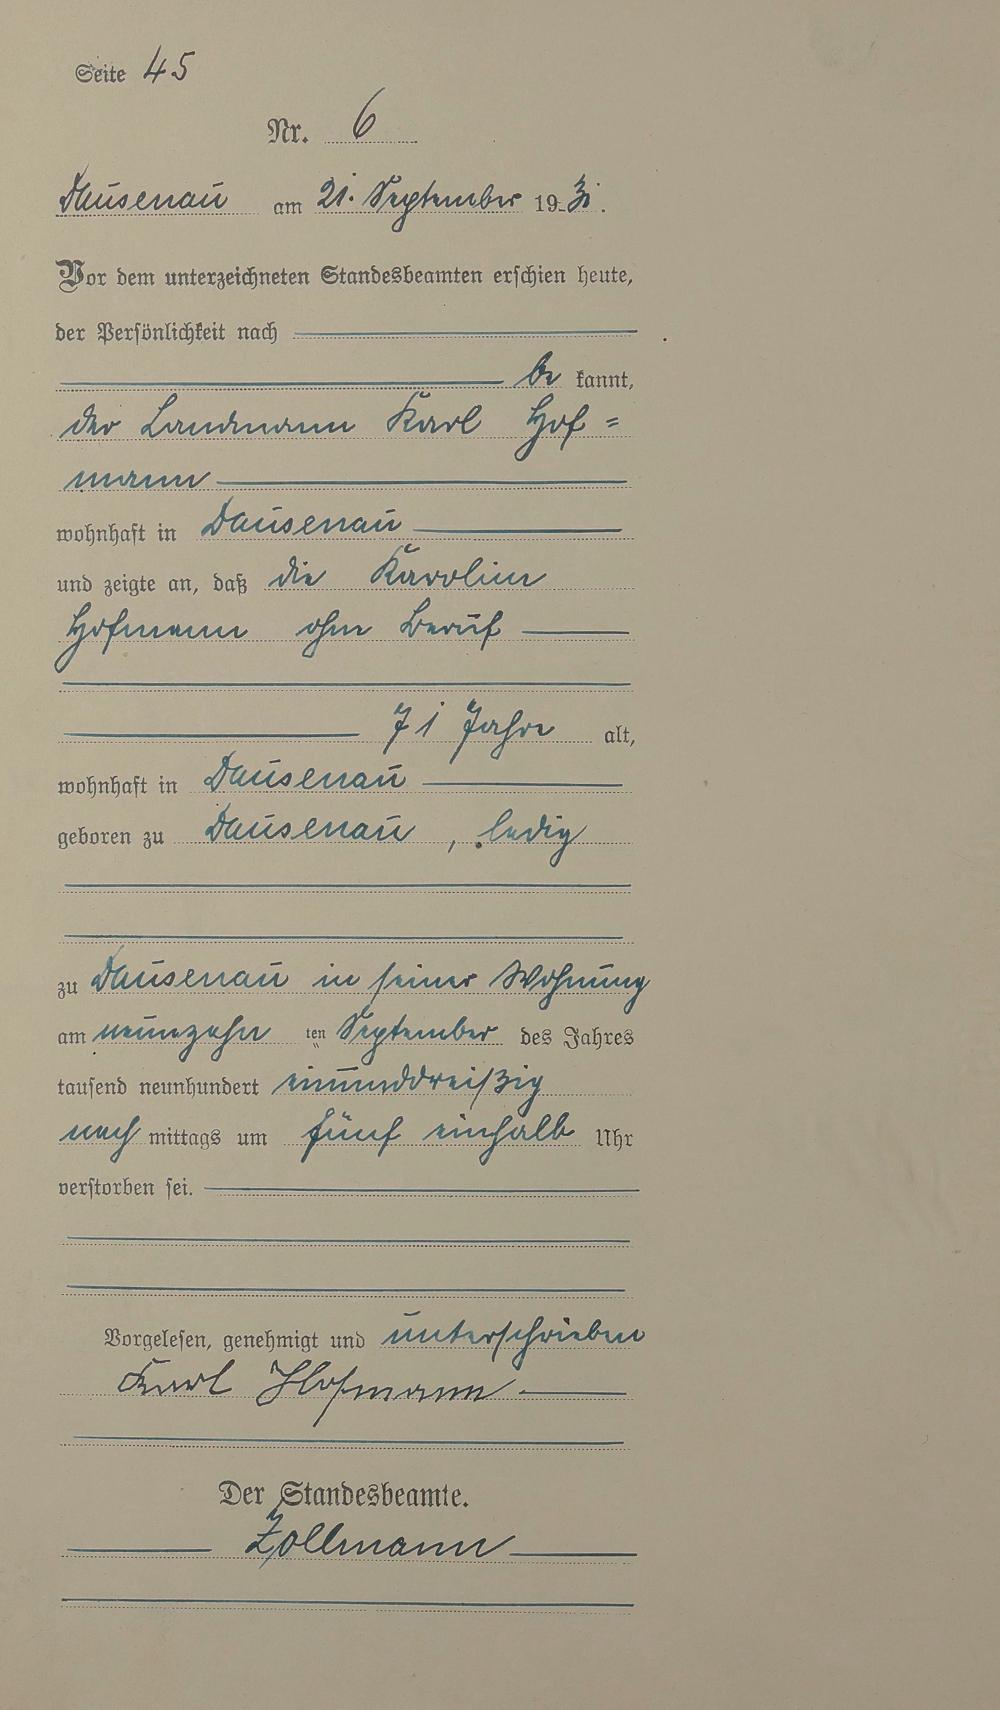 Seite 45
Nr. 6
Dausenau am 21. September 1931.
Vor dem unterzeichneten Standesbeamten erschien heute,
der Persönlichkeit nach
be kannt,
der Landmann Karl Hof=
mann
wohnhaft in Dausenau
und zeigte an, daß die Karoline
Hofmann ohne Beruf
71 Jahre alt,
wohnhaft in Dausenau
geboren zu Dausenau, ledig
zu Dausenau in seiner Wohnung
am neunzehn ten September des Jahres
tausend neunhundert einunddreißig
nach mittags um fünf einhalb Uhr
verstorben sei.
Vorgelesen, genehmigt und unterschrieben
Karl Hofmann
Der Standesbeamte.
Zollmann